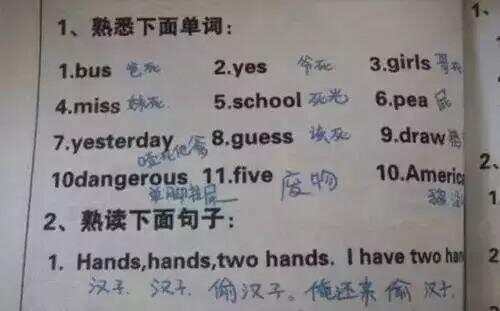 1、熟悉下面单词：
1.bus 爸死 2.yes 爷死 3.girls 哥死
4.miss 妹死 5.school 死光 6.pea 屁
7.yesterday 8.guess 该死 9.draw
10dangerous 11.five 废物 10.Americ
单脚拉屎
2、熟读下面句子：
1. Hands,hands,two hands. I have two han
汉子. 汉子. 偷汉子。俺还来偷汉子.